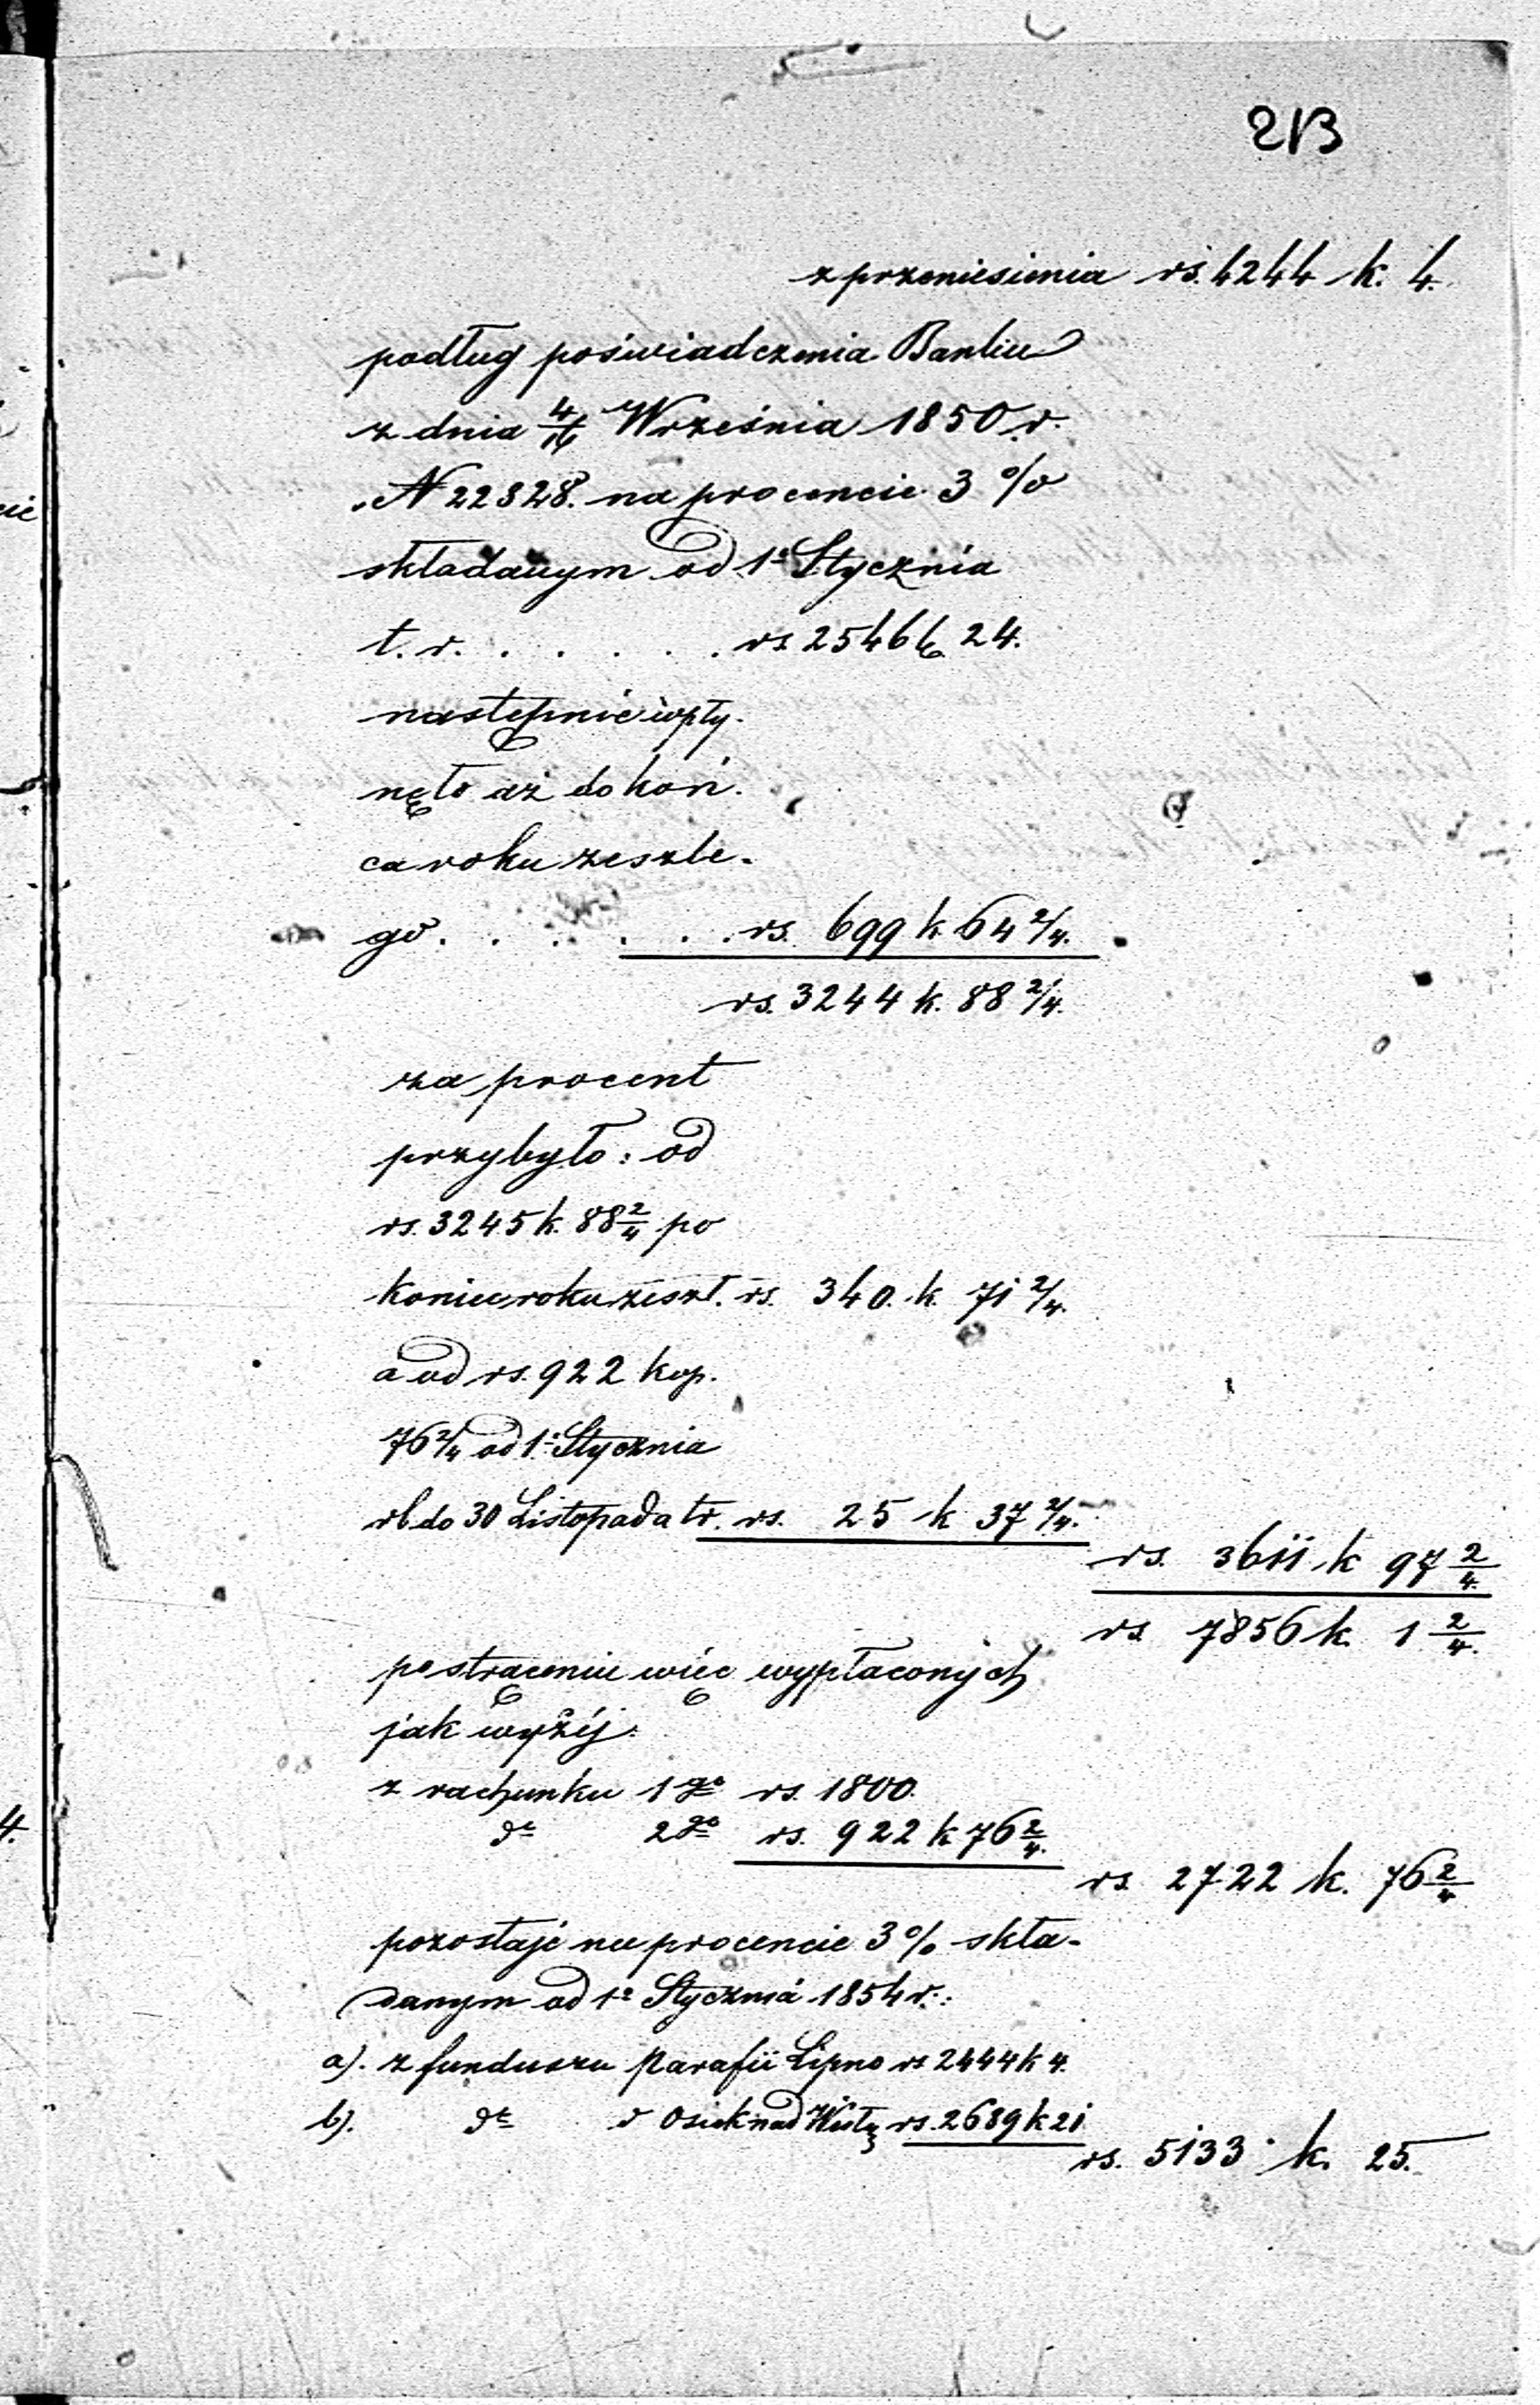 213
z przeniesienia rs. 4244 k. 4.
podług poświadczenia Banku
z dnia 4/16 Września 1850 r.
N 22328. na procencie 3 %
składanym od 1º Stycznia
t. r. . . . . . . rs 2546 k 24.
następnie wpły-
nęło aż do koń-
ca roku zeszłe-
go . . . . . . rs. 699 k 64 2/4.
rs. 3244 k. 88 2/4.
za procent
przybyło: od
rs. 3245 k. 88 2/4 po
koniec roku zeszł. rs. 340. k. 71 2/4.
a od rs. 922 kop.
76 2/4 od 1º Stycznia
rb do 30 Listopada tr. rs. 25 k 37 2/4.
rs. 3611 k 97 2/4.
rs 7856 k. 1 2/4.
po strąceniu więc wypłaconych
jak wyżéj:
z rachunku 1go rs. 1800.
dº 2go rs. 922 k 76 2/4.
rs 2722 k. 76 2/4
pozostaje na procencie 3 % skła-
danym od 1º Stycznia 1854 r.:
a). z funduszu Parafii Lipno rs 2444 k 4.
b). dº d Osiek nad Wisłą rs. 2689 k 21
rs. 5133 k. 25.